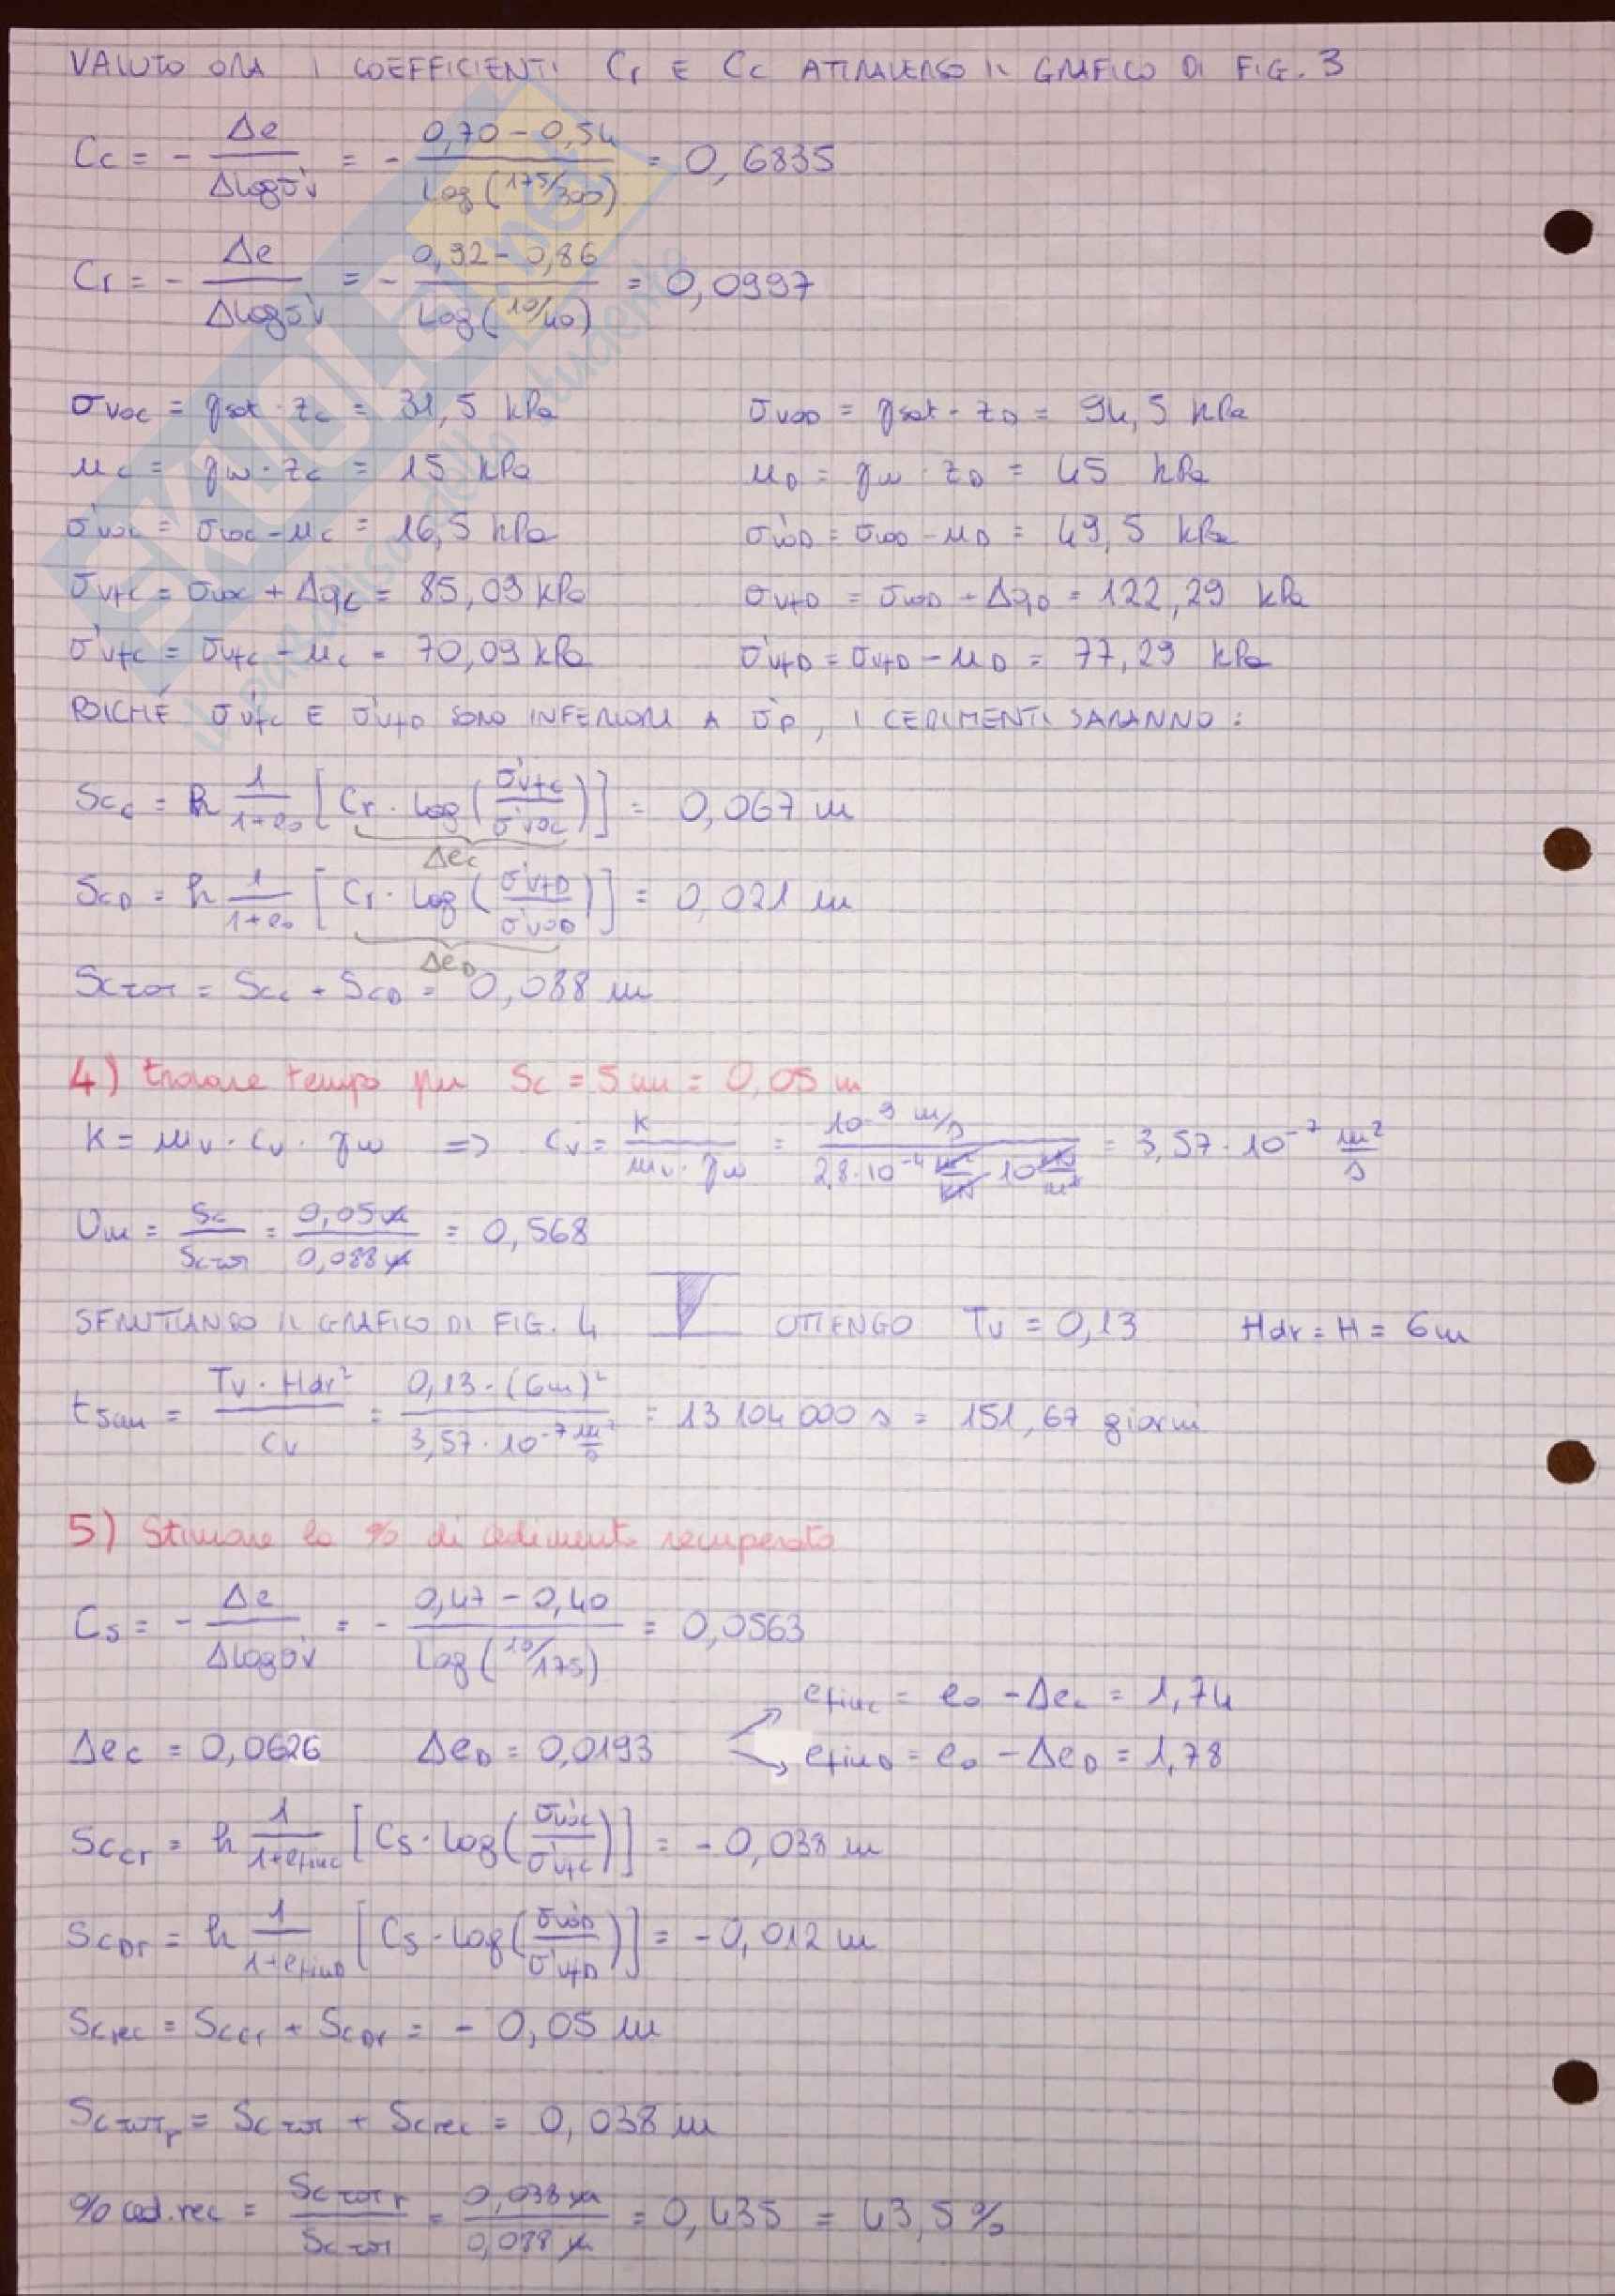 VALUTO ORA I COEFFICIENTI Cr E Cc ATTRAVERSO IL GRAFICO DI FIG. 3
Cc = - Δe / Δlogσ'v = - (0,70 - 0,54) / Log(175/300) = 0,6835
Cr = - Δe / Δlogσ'v = - (0,92 - 0,86) / Log(10/40) = 0,0997
σvoc = γsat · zc = 31,5 kPa σvoD = γsat · zD = 94,5 kPa
μc = γw · zc = 15 kPa μD = γw · zD = 45 kPa
σ'voc = σvoc - μc = 16,5 kPa σ'voD = σvoD - μD = 49,5 kPa
σvfc = σvoc + Δqc = 85,09 kPa σvfD = σvoD + ΔqD = 122,29 kPa
σ'vfc = σvfc - μc = 70,09 kPa σ'vfD = σvfD - μD = 77,29 kPa
POICHÉ σ'vfc E σ'vfD SONO INFERIORI A σ'p, I CEDIMENTI SARANNO:
Scc = h 1/(1+eo) [Cr · log(σ'vfc/σ'voc)] = 0,067 m
Δec
ScD = h 1/(1+eo) [Cr · log(σ'vfD/σ'voD)] = 0,021 m
ΔeD
ScTOT = Scc + ScD = 0,088 m
4) trovare tempo per Sc = 5 cm = 0,05 m
K = mv · cv · γw => cv = K / (mv · γw) = 10⁻⁹ m/s / (2,8·10⁻⁴ m²/kN · 10 kN/m³) = 3,57 · 10⁻⁷ m²/s
Um = Sc / ScTOT = 0,05 m / 0,088 m = 0,568
SFRUTTANDO IL GRAFICO DI FIG. 4 OTTENGO Tv = 0,13 Hdr = H = 6m
t5cm = Tv · Hdr² / cv = 0,13 · (6m)² / (3,57 · 10⁻⁷ m²/s) = 13 104 000 s = 151,67 giorni
5) Stimare la % di cedimento recuperato
Cs = - Δe / Δlogσ'v = - (0,47 - 0,40) / Log(10/175) = 0,0563
efinc = eo - Δec = 1,74
Δec = 0,0626 ΔeD = 0,0193 efinD = eo - ΔeD = 1,78
Sccr = h 1/(1+efinc) [Cs · log(σ'voc/σ'vfc)] = - 0,038 m
ScDr = h 1/(1+efinD) [Cs · log(σ'voD/σ'vfD)] = - 0,012 m
Screc = Sccr + ScDr = - 0,05 m
ScTOTr = ScTOT + Screc = 0,038 m
% ced.rec = ScTOTr / ScTOT = 0,038 m / 0,088 m = 0,435 = 43,5 %